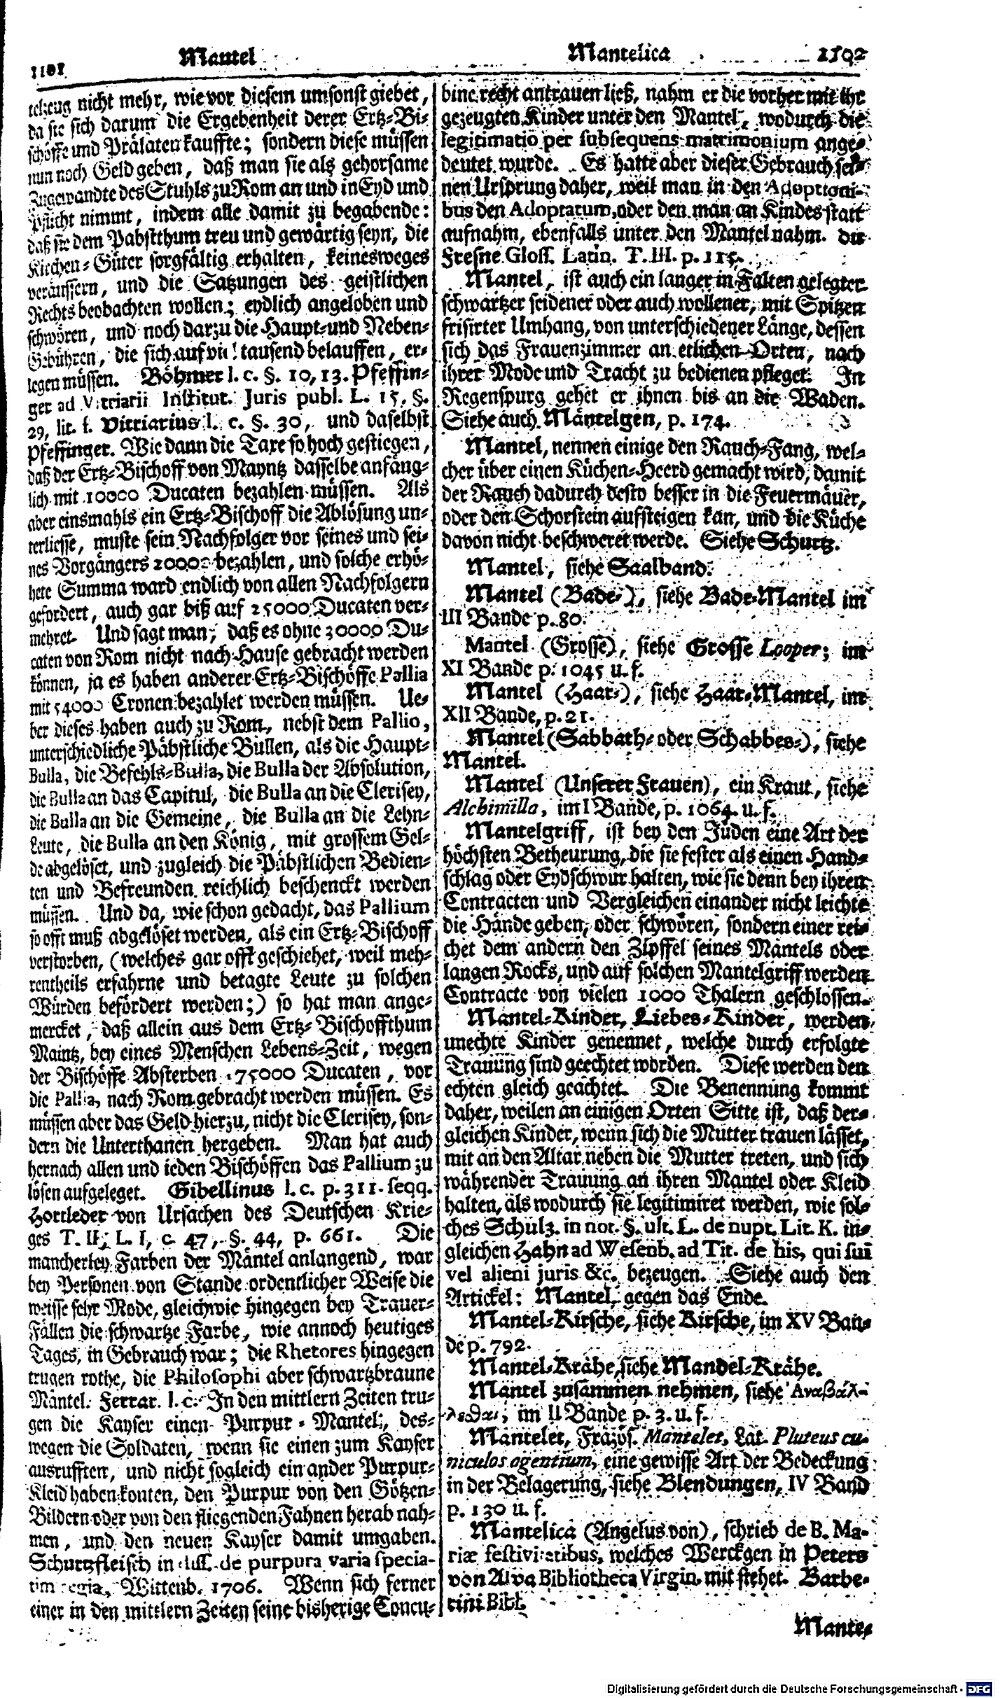 Mantel
telzeug nicht mehr, wie vor diesem umsonst giebet,
da sie sich darum die Ergebenheit derer Ertz-Bi-
schöffe und Prälaten kauffte; sondern diese müssen
nun noch Geld geben, daß man sie als gehorsame
Zugewandte des Stuhls zu Rom an und in Eyd und
Pflicht nimmt, indem alle damit zu begabende:
daß sie dem Pabstthum treu und gewärtig seyn, die
Kirchen-Güter sorgfältig erhalten, keinesweges
veräussern, und die Satzungen des geistlichen
Rechts beobachten wollen; eydlich angeloben und
schwören, und noch darzu die Haupt-und Neben-
Gebühren, die sich auf viel tausend belauffen, er-
legen müssen. Böhmer l. c. §. 10, 13. Pfeffin-
ger ad Vitriarii Institut. Juris publ. L. 15. §.
29, lit. f. Vitriarius l. c. §. 30, und daselbst
Pfeffinger. Wie dann die Taxe so hoch gestiegen,
daß der Ertz-Bischoff von Mayntz dasselbe anfäng-
lich mit 10000 Ducaten bezahlen müssen. Als
aber einsmahls ein Ertz-Bischoff die Ablösung un-
terliesse, muste sein Nachfolger vor seines und sei-
nes Vorgängers 20000 bezahlen, und solche erhö-
hete Summa ward endlich von allen Nachfolgern
gefordert, auch gar biß auf 25000 Ducaten ver-
mehret. Und sagt man, daß es ohne 30000 Du-
caten von Rom nicht nach Hause gebracht werden
können, ja es haben anderer Ertz-Bischöffe Pallia
mit 54000 Cronen bezahlet werden müssen. Ue-
ber dieses haben auch zu Rom, nebst dem Pallio,
unterschiedliche Päbstliche Bullen, als die Haupt-
Bulla, die Befehls-Bulla, die Bulla der Absolution,
die Bulla an das Capitul, die Bulla an die Clerisey,
die Bulla an die Gemeine, die Bulla an die Lehn-
Leute, die Bulla an den König, mit grossem Gel-
de abgelöset, und zugleich die Päbstlichen Bedien-
ten und Befreunden reichlich beschenckt werden
müssen. Und da, wie schon gedacht, das Pallium
so offt muß abgelöset werden, als ein Ertz-Bischoff
verstorben, (welches gar offt geschiehet, weil meh-
rentheils erfahrne und betagte Leute zu solchen
Würden befördert werden;) so hat man ange-
mercket, daß allein aus dem Ertz-Bischoffthum
Maintz, bey eines Menschen Lebens-Zeit, wegen
der Bischöffe Absterben 175000 Ducaten, vor
die Pallia, nach Rom gebracht werden müssen. Es
müssen aber das Geld hierzu, nicht die Clerisey, son-
dern die Unterthanen hergeben. Man hat auch
hernach allen und ieden Bischöffen das Pallium zu
lösen aufgeleget. Gibellinus l. c. p. 311. seqq.
Hortleder von Ursachen des Deutschen Krie-
ges T. II, L. I, c. 47, §. 44, p. 661. Die
mancherley Farben der Mäntel anlangend, war
bey Personen von Stande ordentlicher Weise die
weisse sehr Mode, gleichwie hingegen bey Trauer-
Fällen die schwartze Farbe, wie annoch heutiges
Tages, in Gebrauch war; die Rhetores hingegen
trugen rothe, die Philosophi aber schwartzbraune
Mäntel. Ferrar. l. c. In den mittlern Zeiten tru-
gen die Kayser einen Purpur-Mantel, des-
wegen die Soldaten, wenn sie einen zum Kayser
ausrufften, und nicht sogleich ein ander Purpur-
Kleid haben konten, den Purpur von den Götzen-
Bildern oder von den fliegenden Fahnen herab nah-
men, und den neuen Kayser damit umgaben.
Schurtzfleisch in diss. de purpura varia specia-
tim regia, Wittenb. 1706. Wenn sich ferner
einer in den mittlern Zeiten seine bisherige Concu-
Mantelica 1592
bine recht antrauen ließ, nahm er die vorher mit ihr
gezeugten Kinder unter den Mantel, wodurch die
legitimatio per subsequens matrimonium ange-
deutet wurde. Es hatte aber dieser Gebrauch sei-
nen Ursprung daher, weil man in den Adoptioni-
bus den Adoptatum, oder den man an Kindes statt
aufnahm, ebenfalls unter den Mantel nahm. du
Fresne Gloss. Latin. T. III. p. 115.
Mantel, ist auch ein langer in Falten gelegter
schwartzer seidener oder auch wollener, mit Spitzen
frisirter Umhang, von unterschiedener Länge, dessen
sich das Frauenzimmer an etlichen Orten, nach
ihrer Mode und Tracht zu bedienen pfleget. In
Regenspurg gehet er ihnen bis an die Waden.
Siehe auch Mäntelgen, p. 174.
Mantel, nennen einige den Rauch-Fang, wel-
cher über einen Küchen-Heerd gemacht wird, damit
der Rauch dadurch desto besser in die Feuermäuer,
oder den Schorstein aufsteigen kan, und die Küche
davon nicht beschweret werde. Siehe Schurtz.
Mantel, siehe Saalband.
Mantel (Bade-), siehe Bade-Mantel im
III Bande p. 80.
Mantel (Grosse), siehe Grosse Looper; im
XI Bande p. 1045 u. f.
Mantel (Haar-), siehe Haar-Mantel, im
XII Bande, p. 21.
Mantel (Sabbath- oder Schabbes-), siehe
Mantel.
Mantel (Unserer Frauen), ein Kraut, siehe
Alchimilla, im I Bande, p. 1064. u. f.
Mantelgriff, ist bey den Jüden eine Art der
höchsten Betheurung, die sie fester als einen Hand-
schlag oder Eydschwur halten, wie sie denn bey ihren
Contracten und Vergleichen einander nicht leichte
die Hände geben, oder schwören, sondern einer rei-
chet dem andern den Zipffel seines Mantels oder
langen Rocks, und auf solchen Mantelgriff werden
Contracte von vielen 1000 Thalern geschlossen.
Mantel-Kinder, Liebes-Kinder, werden
unechte Kinder genennet, welche durch erfolgte
Trauung sind geechtet worden. Diese werden den
echten gleich geachtet. Die Benennung kommt
daher, weilen an einigen Orten Sitte ist, daß der-
gleichen Kinder, wenn sich die Mutter trauen lässet,
mit an den Altar neben die Mutter treten, und sich
währender Trauung an ihren Mantel oder Kleid
halten, als wodurch sie legitimiret werden, wie sol-
ches Schulz. in not. §. ult. L. de nupt. Lit. K. in-
gleichen Hahn ad Wesenb. ad Tit. de his, qui sui
vel alieni juris &c. bezeugen. Siehe auch den
Artickel: Mantel, gegen das Ende.
Mantel-Kirsche, siehe Kirsche, im XV Ban-
de p. 792.
Mantel-Krähe, siehe Mandel-Krähe.
Mantel zusammen nehmen, siehe Ἀναβάλ-
λεσθαι, im II Bande p. 3. u. f.
Mantelet, Frazös. Mantelet, Lat. Pluteus cu-
niculos agentium, eine gewisse Art der Bedeckung
in der Belagerung, siehe Blendungen, IV Band
p. 130 u. f.
Mantelica (Angelus von), schrieb de B. Ma-
riæ festivitatibus, welches Werckgen in Peters
von Alva Bibliotheca Virgin. mit stehet. Barbe-
rini Bibl.
Mante-
Digitalisierung gefördert durch die Deutsche Forschungsgemeinschaft - DFG